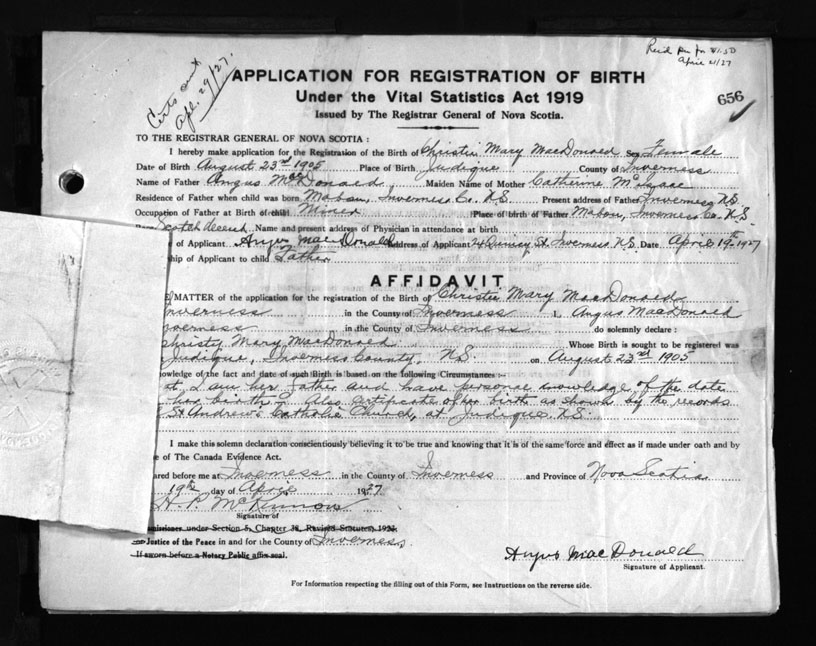 Certs sent
Apl. 29/27.
April 21/27
APPLICATION FOR REGISTRATION OF BIRTH
Under the Vital Statistics Act 1919
656
Issued by The Registrar General of Nova Scotia.
TO THE REGISTRAR GENERAL OF NOVA SCOTIA :
I hereby make application for the Registration of the Birth of Christie Mary MacDonald Sex Female
Date of Birth August 23rd 1905 Place of Birth Judique County of Inverness
Name of Father Angus MacDonald Maiden Name of Mother Catherine McIsaac
Residence of Father when child was born Mabou, Inverness Co. N.S. Present address of Father Inverness N.S.
Occupation of Father at Birth of child Miner Place of birth of Father Mabou, Inverness Co. N.S.
Scotch Name and present address of Physician in attendance at birth
of Applicant Angus MacDonald Address of Applicant 24 St. Inverness N.S. Date April 19th 1927
ship of Applicant to child Father
AFFIDAVIT
MATTER of the application for the registration of the Birth of Christie Mary MacDonald
Inverness in the County of Inverness I, Angus MacDonald
Inverness in the County of Inverness do solemnly declare :
Christy Mary MacDonald Whose Birth is sought to be registered was
Judique, Inverness County, N.S. on August 23rd 1905
nowledge of the fact and date of such Birth is based on the following Circumstances :-
at I am her father and have personal knowledge of the date
her birth. Also certificate of her birth as shown by the records
St Andrew's Catholic Church, at Judique N.S.
I make this solemn declaration conscientiously believing it to be true and knowing that it is of the same force and effect as if made under oath and by
e of The Canada Evidence Act.
ared before me at Inverness in the County of Inverness and Province of Nova Scotia
19th day of April 1927
McKinnon
Signature of
missioner under Section 5, Chapter 38, Revised Statutes, 1923.
Justice of the Peace in and for the County of Inverness
If sworn before a Notary Public affix seal.
Angus MacDonald
Signature of Applicant.
For Information respecting the filling out of this Form, see Instructions on the reverse side.